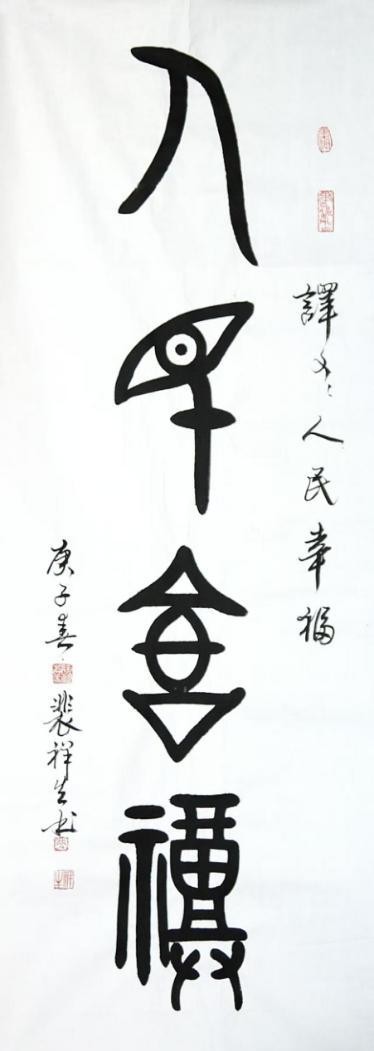 人民幸福
譯文：人民幸福
庚子春
裴祥生书